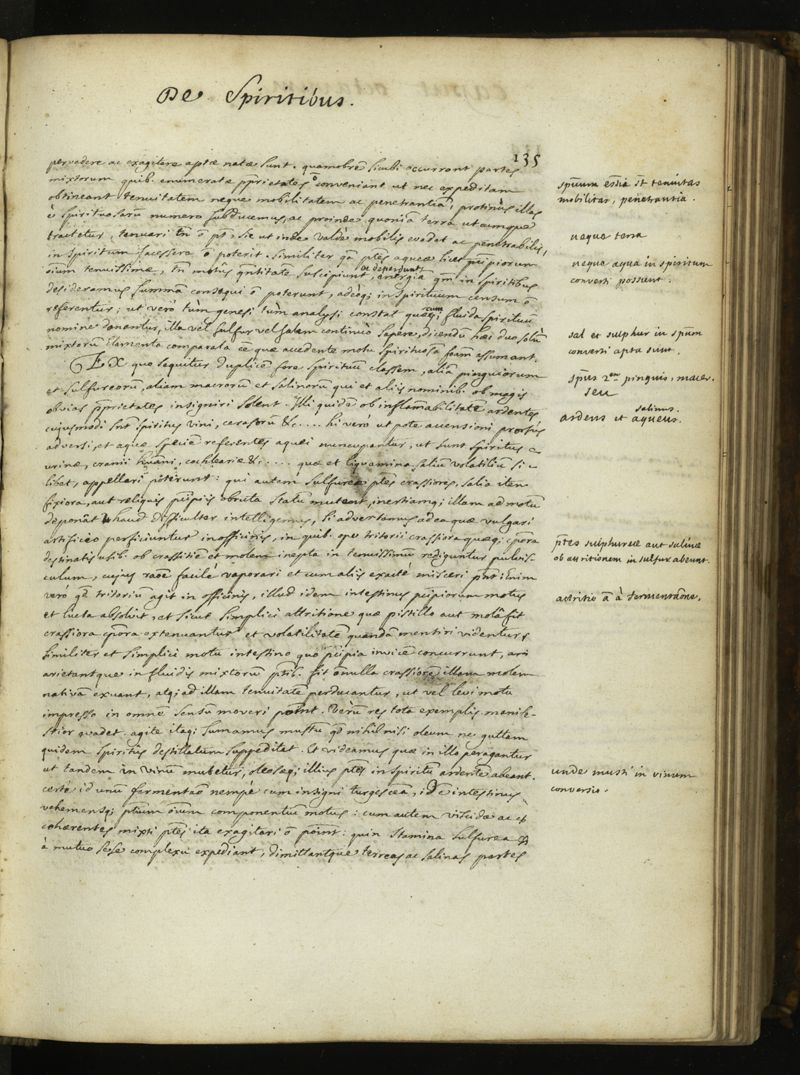 De Spiritibus.
135
pervadere ac exagitare aptæ natæ sunt. quamobrē sicubi occurrant partes
mixtorum quib. enumeratæ pprietates ō conveniant ut nec expeditam
obtineant tenuitatem neque mobilitatem ac penetrantiā, protinùs illas
è spirituosarū numero subducemus, ac proinde quoniā terra utcumque
tractetur, tenuari tñ ō pt, sic ut inde valde mobilis evadat ac penetrabilis,
in spiritum facessere ō poterit. similiter partes aqueæ licet
oīum tenuissimæ, tñ motus qntitatē suscipiunt, ac dependent energia qm in spiritibus
desideramus summā consequi ō poterunt, adeoqi in spirituum censum ō
referentur; ut verò tùm genesi tùm analysi constat quæqi fluida spirituū
nomine donantur, illa vel sulfur vel salem continuò sapere, dicendū hæc duo solū
mixtorū elementa comparata ēē quæ accedente motu spirituosā formam assumant.
Ex quo sequitur duplicē fore spirituum classem, aliā pinguiorum
et sulfureorū, aliam macrorū et salinorū qui et aliis nominib. ob magis
obvias pprietates insigniri solent. Illi quidē ob inflāmabilitatē ardentes
cujusmodi snt spiritus vini, cerasorū &c.... hi verò ut pote accensioni prorsùs
adversi, et aquæ spēciē referentes aquei nuncupantur, ut sunt spiritus
urinæ, cranii humani, cochleariæ &c.... quæ et liquamina salium volatiliū si
libet, appellari poterunt: qui autem sulfureæ ptes crassiores, salia item
fixiora, aut reliquis pcipiis obruta statū mutent, inertiamqi illam ad motū
deponāt haud difficulter intelligemus, si advertamus ad ea quæ vulgari
artificio perficiuntur in officinis, in quib. ope tritorii crassiora quæqi cpora
destinatis usib. ob crassitiē et molem inepta in tenuissimū rediguntur pulvis-
culum, cujus raōe facilè vaporari et cum aliis exactè misceri
verò qd tritoriū agit in officinis, illud idem intestinus pcipiorum motus
et lucta absolvit, et sicut simplici attritione quæ pistillo aut molā fit
crassiora cpora extenuantur et volatilitatē quandā mentiri videntur
similiter et simplici motu intestino quo pcipia invicē concurrunt, ari
arietantque in fluidis mixtorū ptib. fit ōnulla crassiorē illam molem
nativā exuant, atqi ad illam tenuitatē perducantur, ut vel levi motu
impresso in omnē sensū moveri point. Verū res tota exemplis manife-
stior evadet. agite itaqi sumamus mustū qd nihil nisi oleum ne guttam
quidem spiritûs destillatum suppeditat. Et videamus quæ in illo peragantur
ut tandem in vinū mutetur, oleosæqi illius ptes in spiritū ardentē abeant.
certè id unū fermentaō nempe cum insigni turgescentia, intestinus
vehemensqi ptium oīum componentiū motus: cum autem viscidæ ac
cohærentes mixti ptes ita exagitari ō point: quin stamina sulfurea &
à mutuo sese complexu expediant, dimittantque terreas ac salinas partes
spuum essentia est tenuitas
mobilitas, penetrantia.
neque terra
neque aqua in spiritum
converti possunt.
sal et sulphur in spum
converti apta sunt.
spus 2ex pinguis, macer.
seu
salinus.
ardens et aqueus.
ptes sulphureæ aut salinæ
ob attritionem in sulfur abeunt.
attritio à fermentaōne.
unde musti in vinum
conversio.